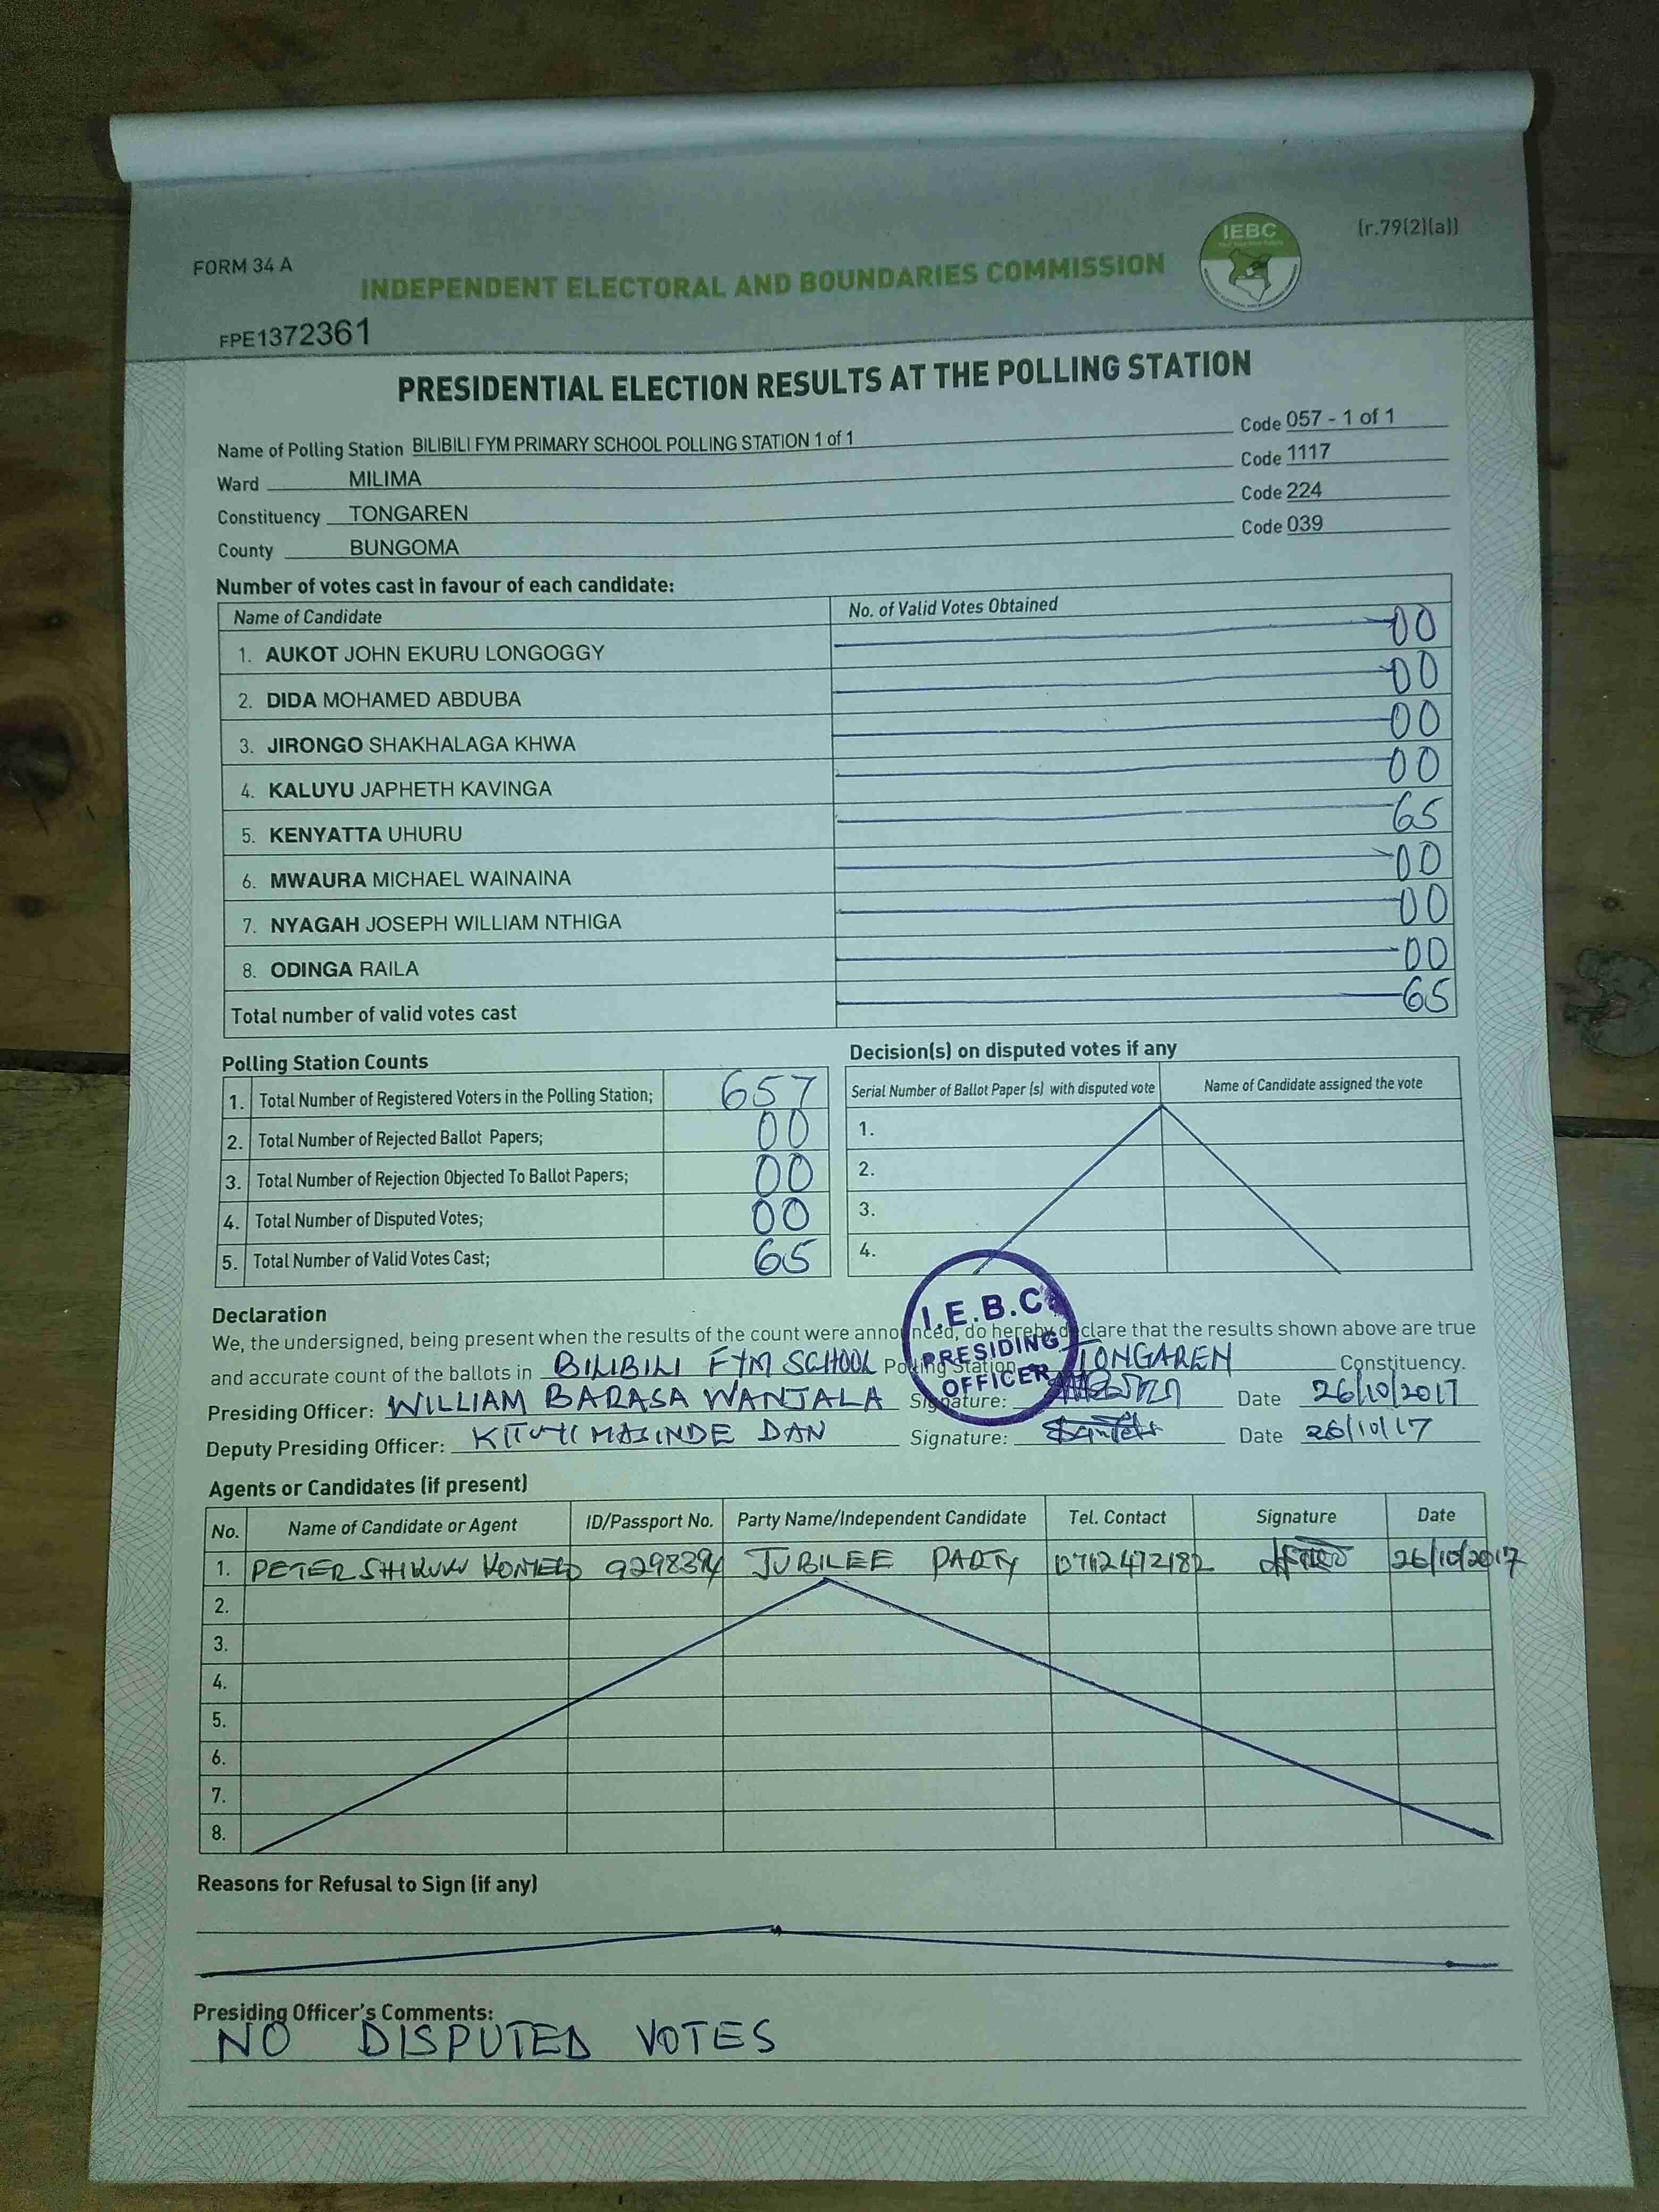 FORM 34 A
INDEPENDENT ELECTORAL AND BOUNDARIES COMMISSION
IEBC
(r.79(2)(a))
FPE1372361
PRESIDENTIAL ELECTION RESULTS AT THE POLLING STATION
Name of Polling Station BILIBILI FYM PRIMARY SCHOOL POLLING STATION 1 of 1 Code 057 - 1 of 1
Ward MILIMA Code 1117
Constituency TONGAREN Code 224
County BUNGOMA Code 039
Number of votes cast in favour of each candidate:
Name of Candidate No. of Valid Votes Obtained
1. AUKOT JOHN EKURU LONGOGGY 00
2. DIDA MOHAMED ABDUBA 00
3. JIRONGO SHAKHALAGA KHWA 00
4. KALUYU JAPHETH KAVINGA 00
5. KENYATTA UHURU 65
6. MWAURA MICHAEL WAINAINA 00
7. NYAGAH JOSEPH WILLIAM NTHIGA 00
8. ODINGA RAILA 00
Total number of valid votes cast 65
Polling Station Counts
1. Total Number of Registered Voters in the Polling Station; 657
2. Total Number of Rejected Ballot Papers; 00
3. Total Number of Rejection Objected To Ballot Papers; 00
4. Total Number of Disputed Votes; 00
5. Total Number of Valid Votes Cast; 65
Decision(s) on disputed votes if any
Serial Number of Ballot Paper (s) with disputed vote Name of Candidate assigned the vote
1.
2.
3.
4.
I.E.B.C
PRESIDING
OFFICER
Declaration
We, the undersigned, being present when the results of the count were announced, do hereby declare that the results shown above are true
and accurate count of the ballots in BILIBILI FYM SCHOOL Polling Station TONGAREN Constituency.
Presiding Officer: WILLIAM BARASA WANJALA Signature: Date 26/10/2017
Deputy Presiding Officer: MASINDE DAN Signature: Date 26/10/17
Agents or Candidates (if present)
No. Name of Candidate or Agent ID/Passport No. Party Name/Independent Candidate Tel. Contact Signature Date
1. PETER JUBILEE PARTY 0712472182 26/10/2017
2.
3.
4.
5.
6.
7.
8.
Reasons for Refusal to Sign (if any)
Presiding Officer's Comments:
NO DISPUTED VOTES